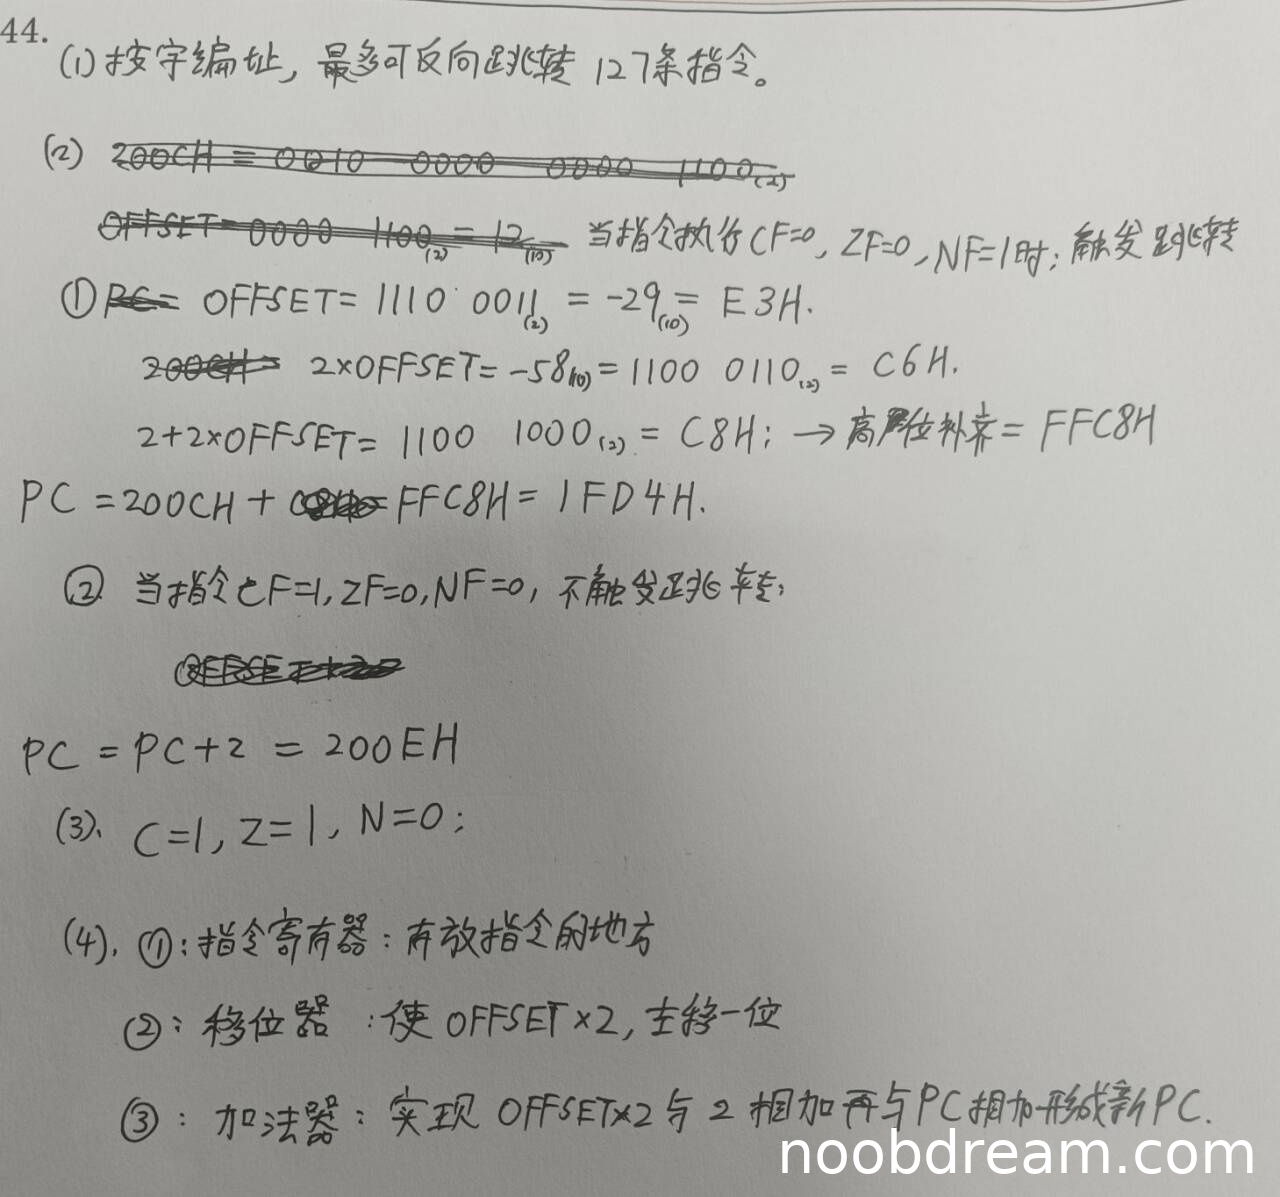 44.
(1)按字编址，最多可反向跳转 127条指令。
(2) 200CH = 0010 0000 0000 1100(2)
OFFSET= 0000 1100(2) = 12(10) 当指令执行CF=0, ZF=0, NF=1时; 触发跳转
①PC= OFFSET= 1110 0011(2) = -29(10) = E3H.
200CH= 2×OFFSET= -58(10) = 1100 0110(2) = C6H.
2+2×OFFSET= 1100 1000(2) = C8H; → 高位补齐= FFC8H
PC =200CH+ FFC8H= 1FD4H.
② 当指令CF=1, ZF=0, NF=0, 不触发跳转;
PC = PC+2 = 200EH
(3)、C=1, Z=1, N=0;
(4). ①:指令寄存器:存放指令的地方
②: 移位器 :使 OFFSET×2, 左移一位
③: 加法器: 实现 OFFSET×2与 2 相加再与PC相加形成新PC.
noobdream.com